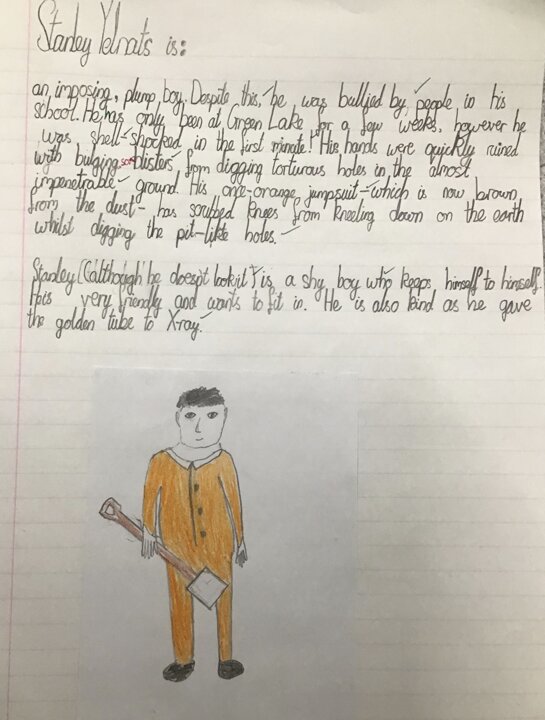 Stanley Yelnats is:
an imposing, plump boy. Despite this, he was bullied by people in his
school. He has only been at Green Lake for a few weeks, however he
was shell-shocked in the first minute! His hands were quickly ruined
with bulging blisters from digging torturous holes in the almost
impenetrable ground. His once-orange jumpsuit - which is now brown
from the dust - has scrubbed knees from kneeling down on the earth
whilst digging the pit-like holes.
Stanley (although he doesn't look it) is a shy boy who keeps himself to himself.
He is very friendly and wants to fit in. He is also kind as he gave
the golden tube to X-ray.